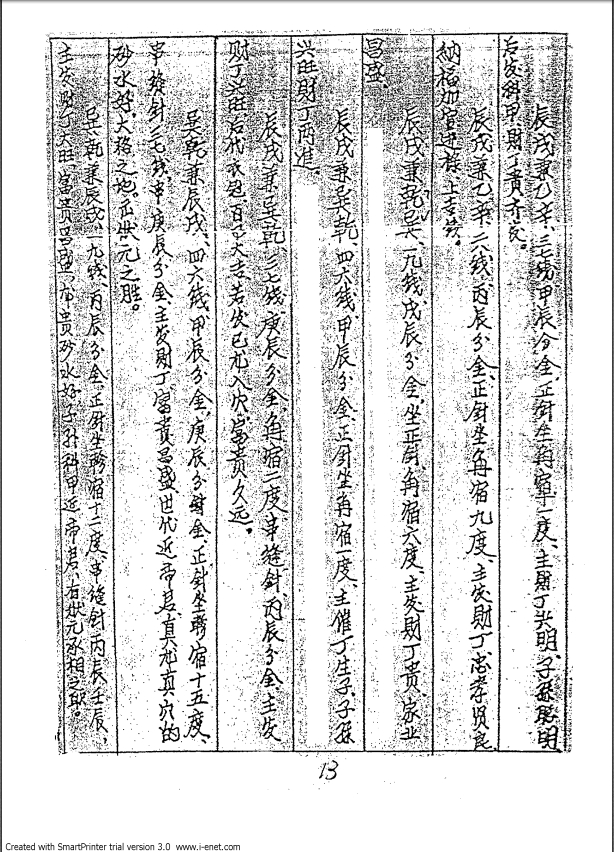 辰戌兼乙辛、三七线、甲辰分金、正針坐角宿十一度、主財丁兴明、子孫聪明
后发科甲、財丁貴齐发。
辰戌兼乙辛、六线、丙辰分金、正針坐角宿九度、主发財丁忠孝贤良
納福加官进禄上吉线。
辰戌兼乾巽、一九线、戊辰分金、坐正針角宿六度、主发財丁貴、家业
昌盛、
辰戌兼巽乾、四六线、甲辰分金、正針坐角宿一度、主催丁生子、子孫
兴旺財丁两进、
辰戌兼巽乾、三七线、庚辰分金、角宿二度、串缝針、丙辰分金、主发
財丁兴旺后代衣 百 大吉若发已 入穴富贵久远。
巽乾兼辰戌、四六线、甲辰分金、庚辰分 金、正針坐轸宿十五度、
串缝針三七线、串庚辰分金、主发財丁、富貴昌盛世代近帝君、真龙真穴的
砂水好、大格之地、正状元之胜。
巽乾兼辰戌、一九线、丙辰分金、正針坐轸宿十二度、串缝針丙辰壬辰、
主发財丁大旺、富貴昌盛、 貴砂水好、子孙科甲近帝君、右状元承相之职。
13
Created with SmartPrinter trial version 3.0 www.i-enet.com